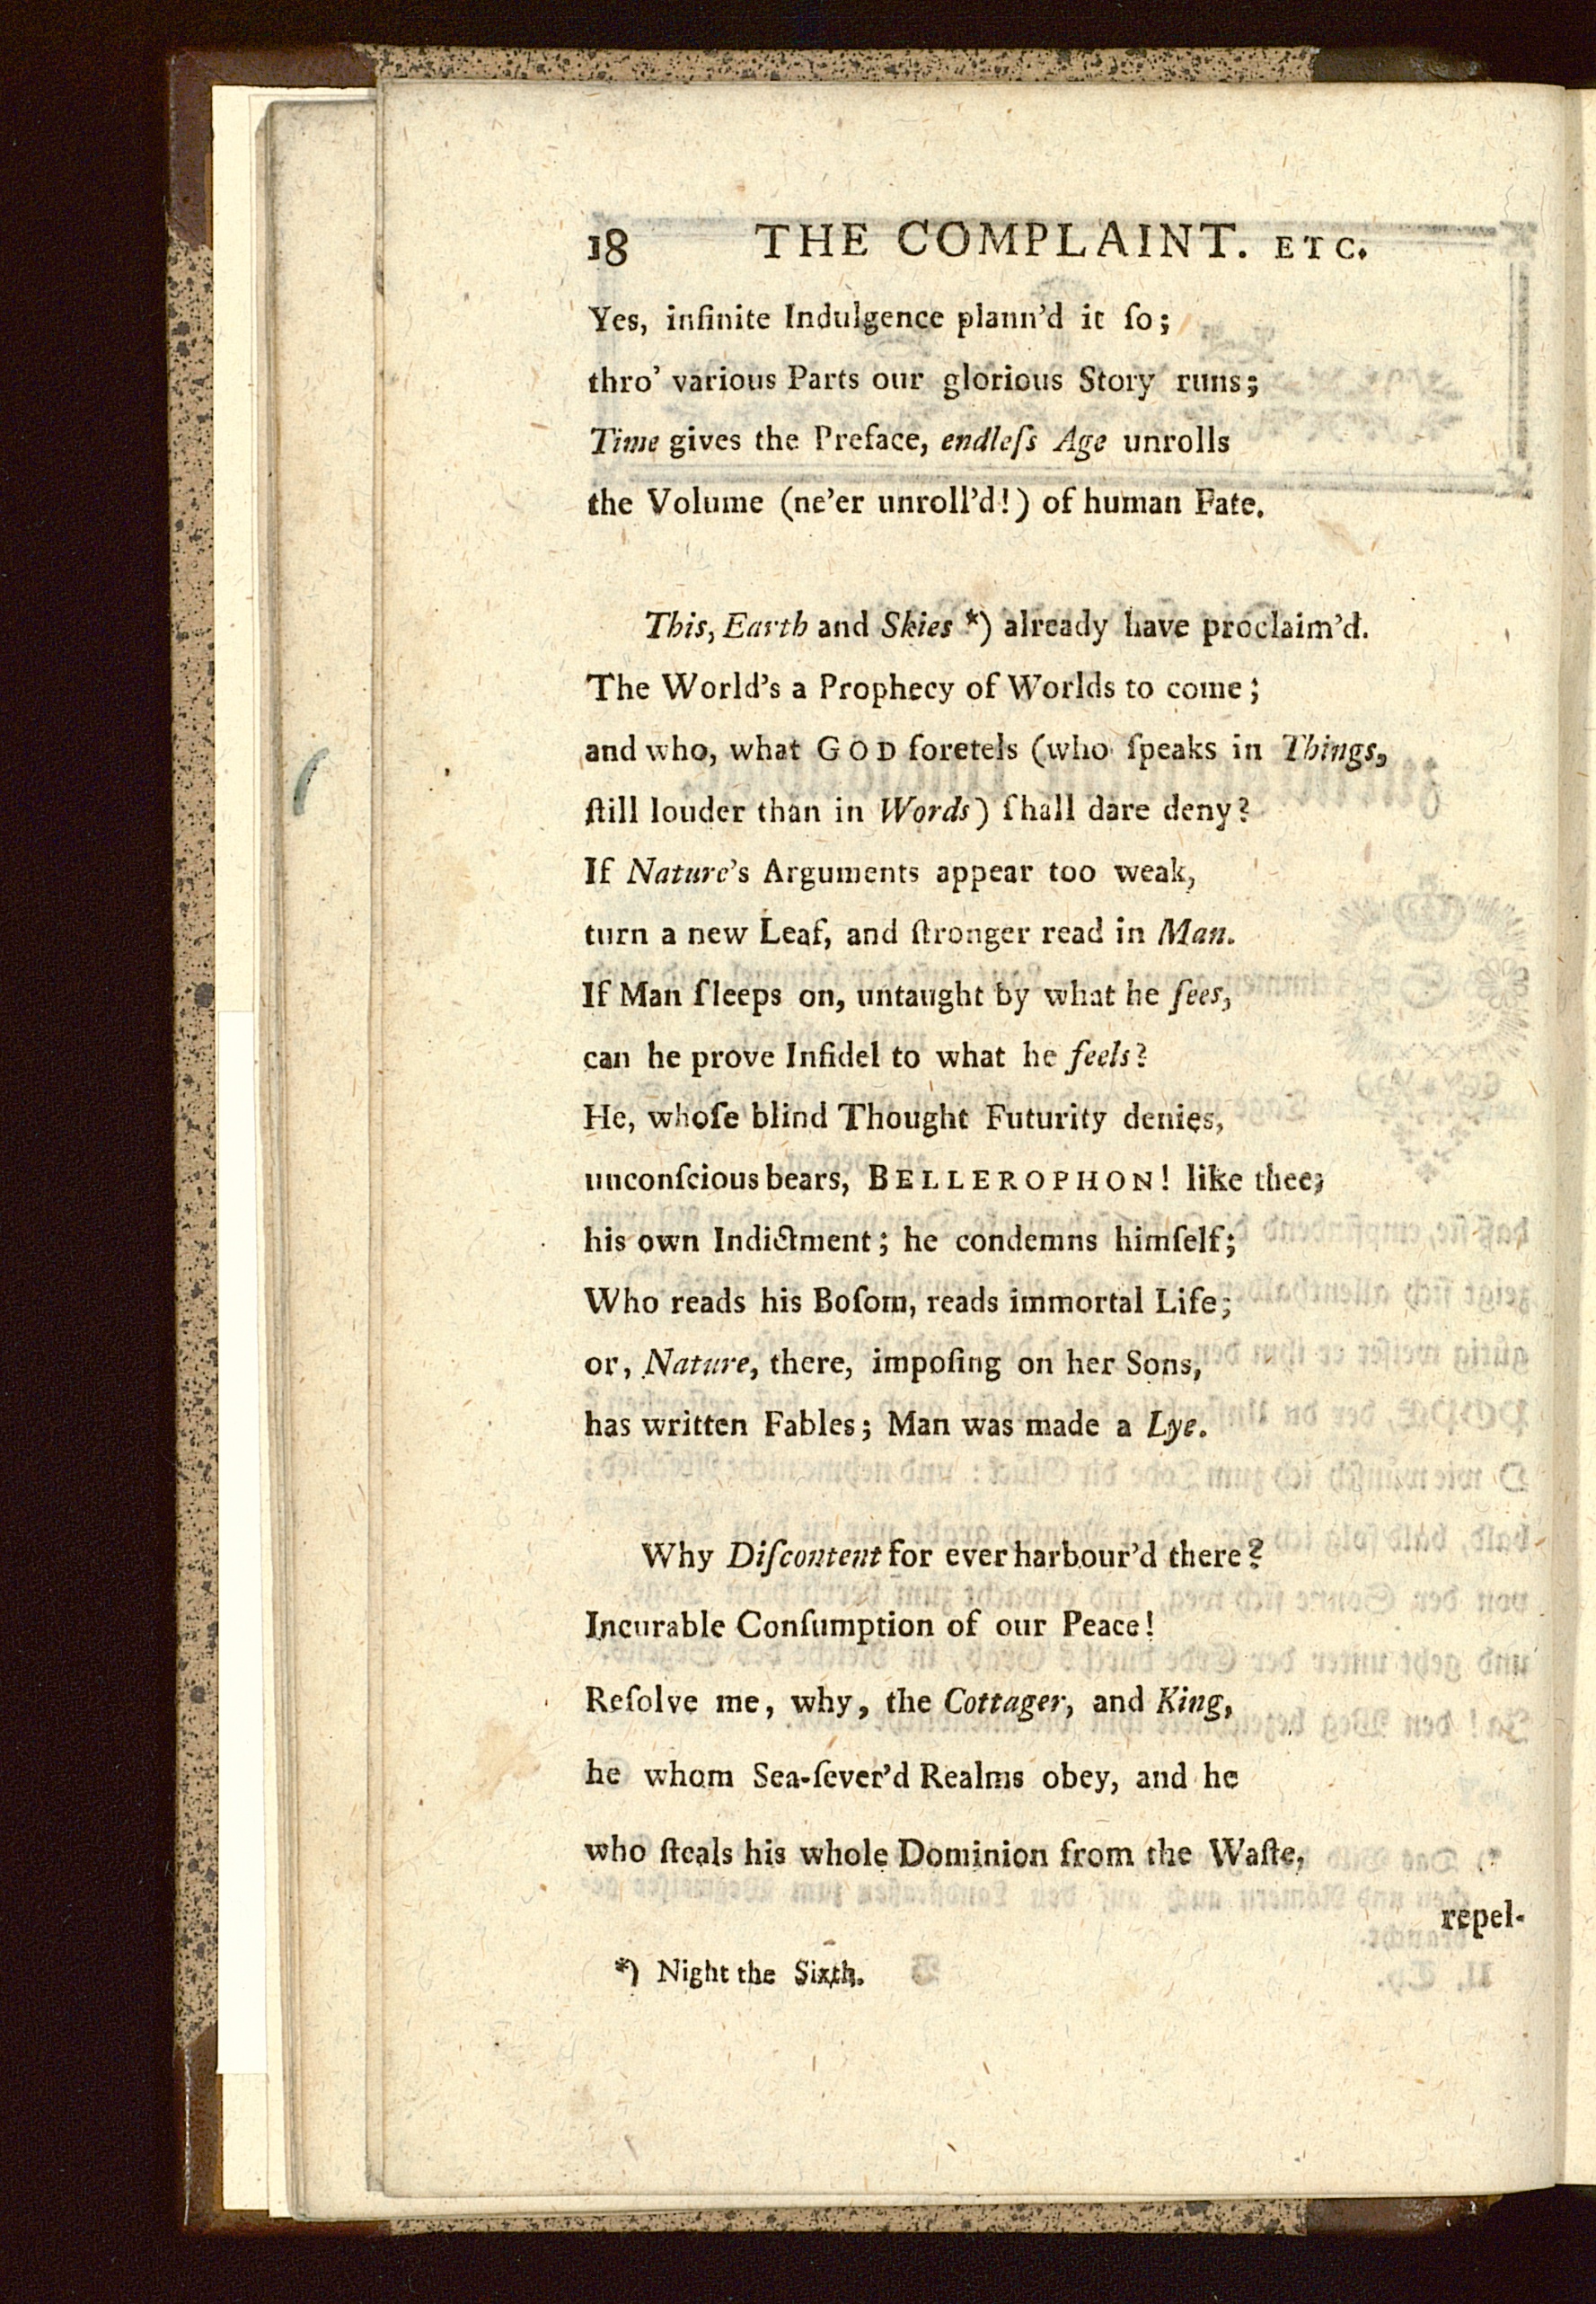 18 THE COMPLAINT. ETC.
Yes, inſinite Indulgence plann'd it ſo;
thro' various Parts our glorious Story runs;
Time gives the Preface, endleſs Age unrolls
the Volume (ne'er unroll'd!) of human Fate.
This, Earth and Skies *) already have proclaim'd.
The World's a Prophecy of Worlds to come;
and who, what GOD foretels (who ſpeaks in Things,
ſtill louder than in Words) ſhall dare deny?
If Nature's Arguments appear too weak,
turn a new Leaf, and ſtronger read in Man.
If Man ſleeps on, untaught by what he ſees,
can he prove Infidel to what he feels?
He, whoſe blind Thought Futurity denies,
unconſcious bears, BELLEROPHON! like thee;
his own Indictment; he condemns himſelf;
Who reads his Boſom, reads immortal Life;
or, Nature, there, impoſing on her Sons,
has written Fables; Man was made a Lye.
Why Diſcontent for ever harbour'd there?
Incurable Conſumption of our Peace!
Reſolve me, why, the Cottager, and King,
he whom Sea-ſever'd Realms obey, and he
who ſteals his whole Dominion from the Waſte,
repel-
*) Night the Sixth.